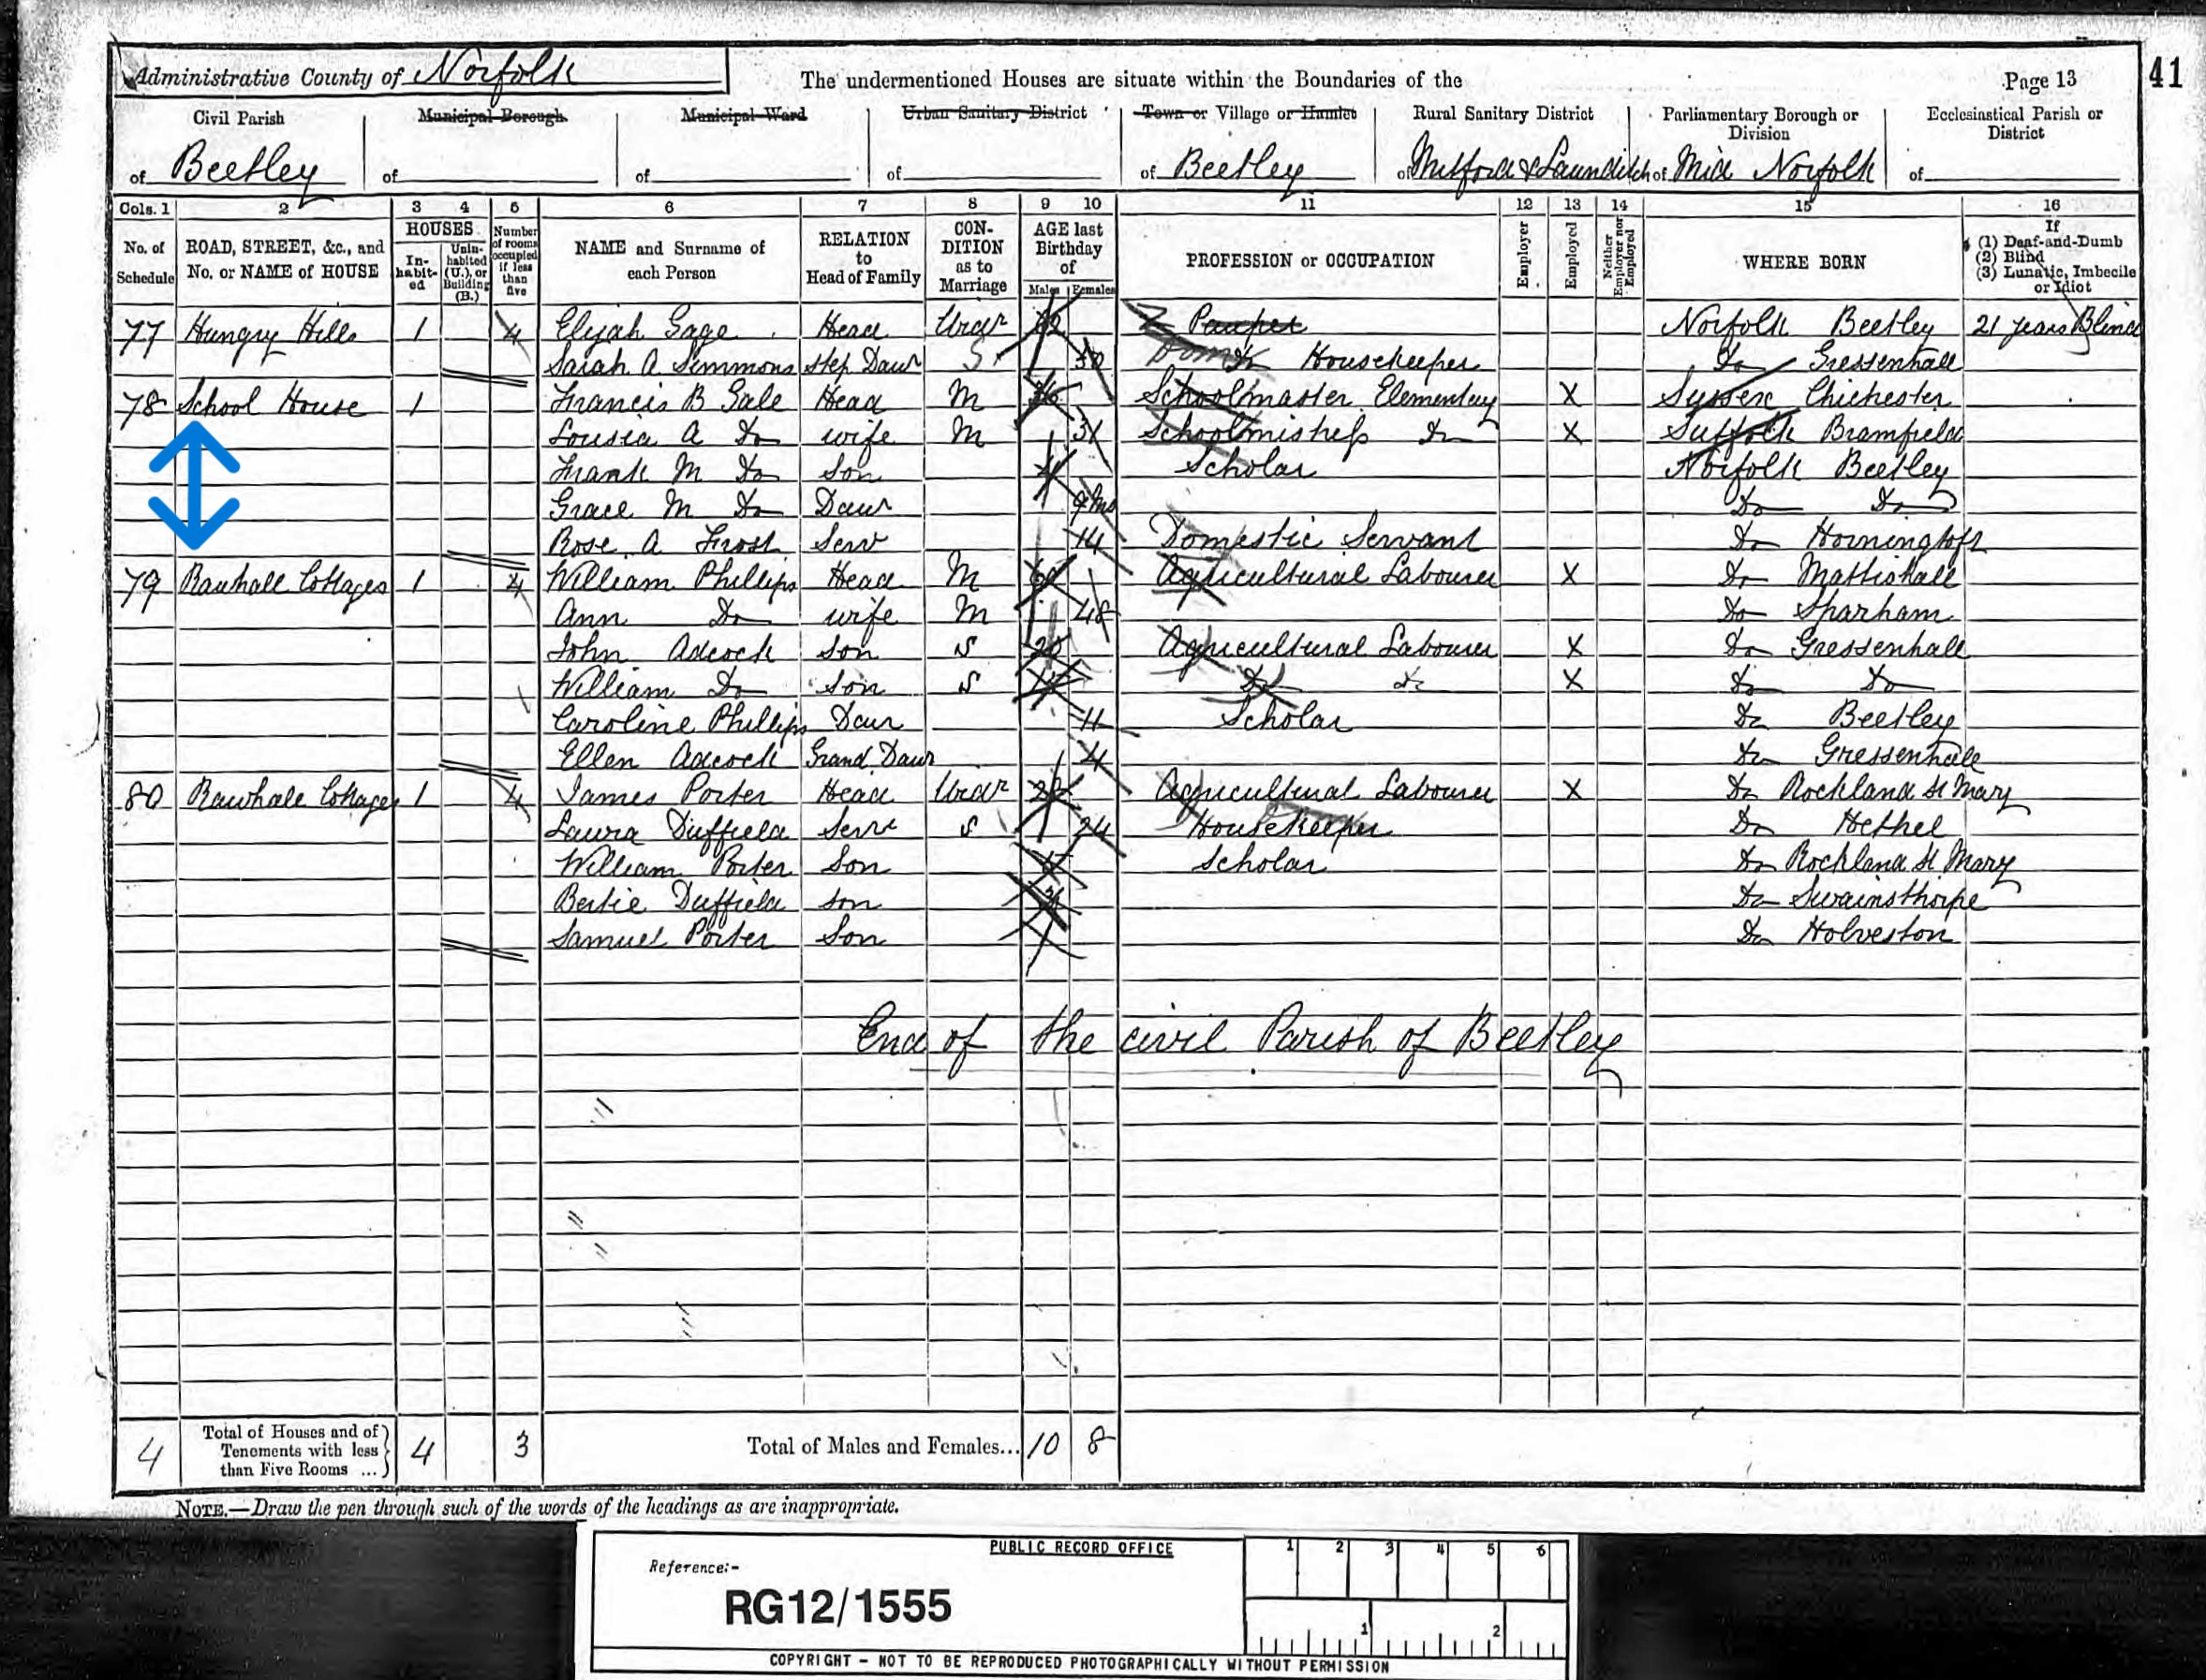 Administrative County of Norfolk
The undermentioned Houses are situate within the Boundaries of the
Page 13
41
Civil Parish
Municipal Borough
Municipal Ward
Urban Sanitary District
Town or Village or Hamlet
Rural Sanitary District
Parliamentary Borough or Division
Ecclesiastical Parish or District
of Beetley
of
of
of
of Beetley
of Mitford & Launditch
of Mid Norfolk
of
Cols. 1 2 3 4 5 6 7 8 9 10 11 12 13 14 15 16
No. of Schedule
ROAD, STREET, &c., and No. or NAME of HOUSE
HOUSES
In-habit-ed
Unin-habited (U.), or Building (B.)
Number of rooms occupied if less than five
NAME and Surname of each Person
RELATION to Head of Family
CON-DITION as to Marriage
AGE last Birthday of
Males Females
PROFESSION or OCCUPATION
Employer
Employed
Neither Employer nor Employed
WHERE BORN
If
(1) Deaf-and-Dumb
(2) Blind
(3) Lunatic, Imbecile or Idiot
77 Hungry Hills 1 4 Elijah Gage Head Widr Pauper Norfolk Beetley 21 years Blind
Sarah A Simmons Step Daur S 50 Housekeeper Do Gressenhall
78 School House 1 Francis B Gale Head M 36 Schoolmaster Elementary X Sussex Chichester
Lousia A Do wife M 31 Schoolmistress Do X Suffolk Bramfield
Frank M Do Son 4 Scholar Norfolk Beetley
Grace M Do Daur 9mo Do Do
Rose A Frost Serv 14 Domestic Servant Do Horningtoft
79 Rawhall Cottages 1 4 William Phillips Head M Agricultural Labourer X Do Mattishall
Ann Do wife M 48 Do Sparham
John Adcock Son S 20 Agricultural Labourer X Do Gressenhall
William Do Son S Do Do X Do Do
Caroline Phillips Daur 11 Scholar Do Beetley
Ellen Adcock Grand Daur 4 Do Gressenhall
80 Rawhall Cottages 1 4 James Porter Head Widr Agricultural Labourer X Do Rockland St Mary
Laura Duffield Serv S 24 Housekeeper Do Hethel
William Porter Son Scholar Do Rockland St Mary
Bertie Duffield Son Do Swainsthorpe
Samuel Porter Son Do Holveston
End of the civil Parish of Beetley
4 Total of Houses and of Tenements with less than Five Rooms ... 4 3 Total of Males and Females... 10 8
NOTE.—Draw the pen through such of the words of the headings as are inappropriate.
PUBLIC RECORD OFFICE
1 2 3 4 5 6
Reference:-
RG12/1555
1 2
COPYRIGHT - NOT TO BE REPRODUCED PHOTOGRAPHICALLY WITHOUT PERMISSION